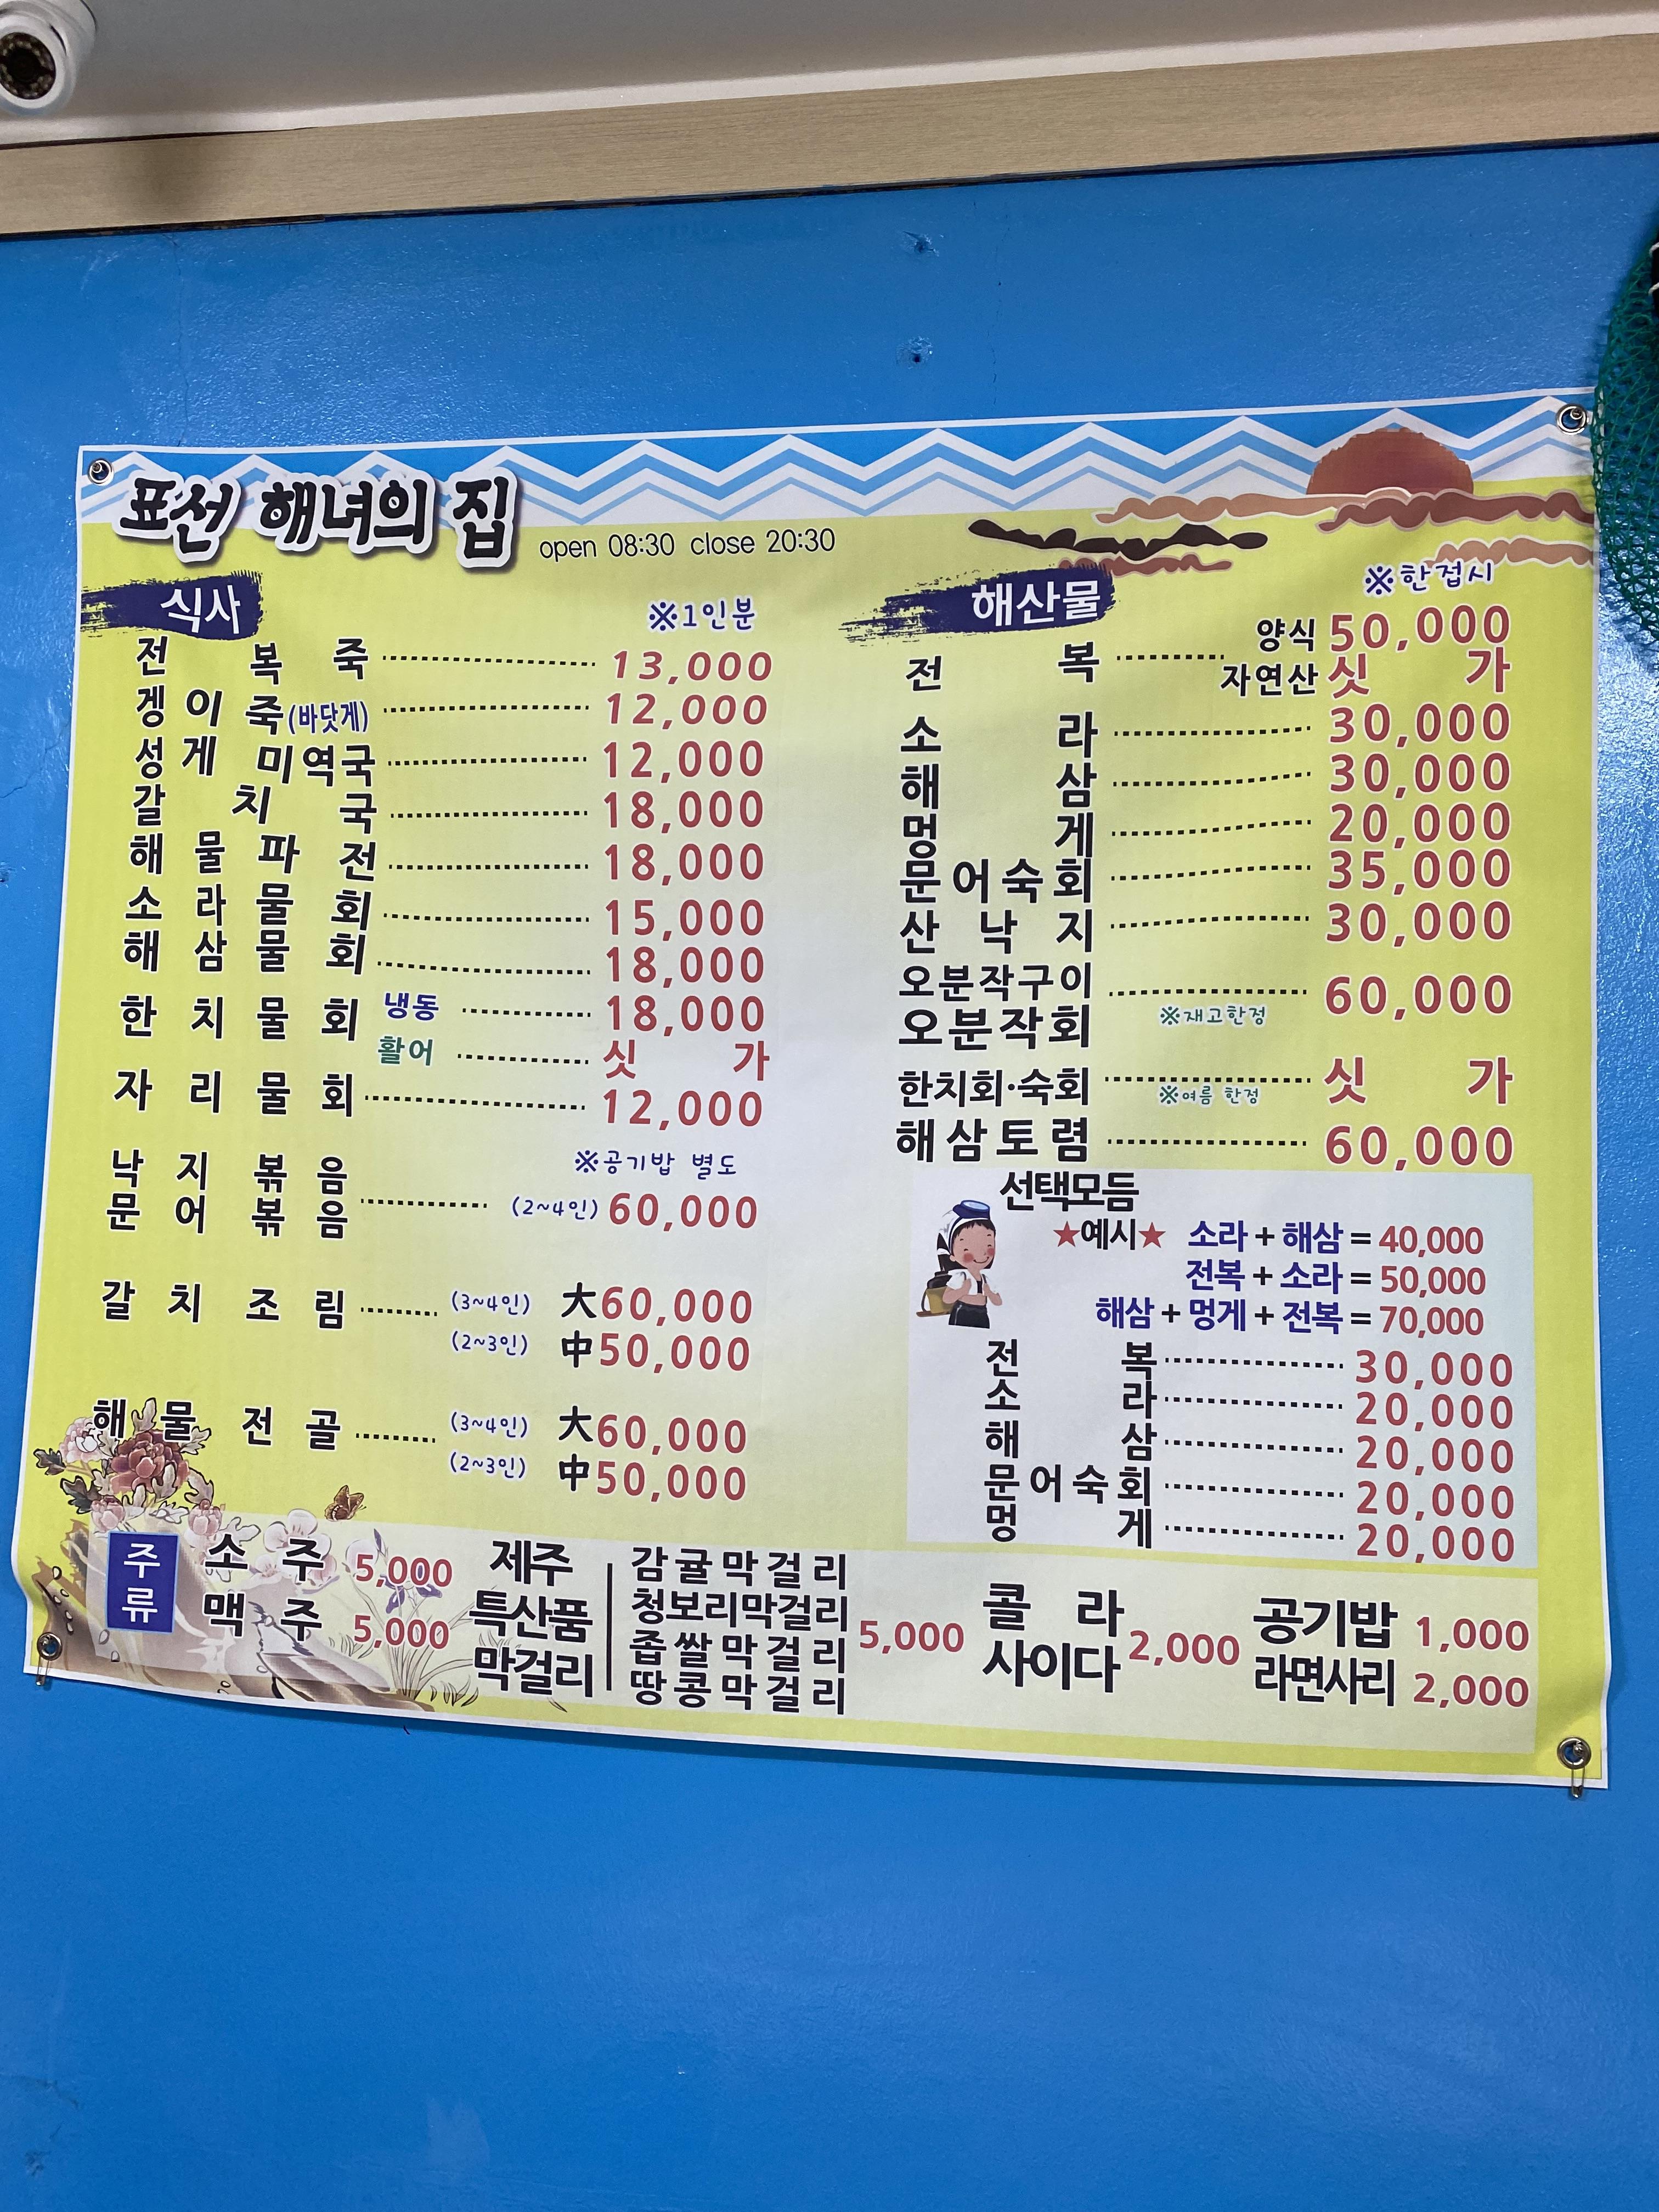 표선 해녀의 집
open 08:30 close 20:30
식사
※1인분
전복죽 13,000
겡이죽(바닷게) 12,000
성게미역국 12,000
갈치국 18,000
해물파전 18,000
소라물회 15,000
해삼물회 18,000
한치물회 냉동 18,000
활어 싯가
자리물회 12,000
※공기밥 별도
낙지볶음
문어볶음 (2~4인) 60,000
갈치조림 (3~4인) 大 60,000
(2~3인) 中 50,000
해물전골 (3~4인) 大 60,000
(2~3인) 中 50,000
해산물
※한접시
전복 양식 50,000
자연산 싯가
소라 30,000
해삼 30,000
멍게 20,000
문어숙회 35,000
산낙지 30,000
오분작구이
오분작회 60,000
※재고한정
한치회·숙회 싯가
※여름 한정
해삼토렴 60,000
선택모듬
★예시★ 소라 + 해삼 = 40,000
전복 + 소라 = 50,000
해삼 + 멍게 + 전복 = 70,000
전복 30,000
소라 20,000
해삼 20,000
문어숙회 20,000
멍게 20,000
주류
소주 5,000
맥주 5,000
제주
특산품
막걸리
감귤막걸리
청보리막걸리
좁쌀막걸리
땅콩막걸리
5,000
콜라
사이다
2,000
공기밥 1,000
라면사리 2,000